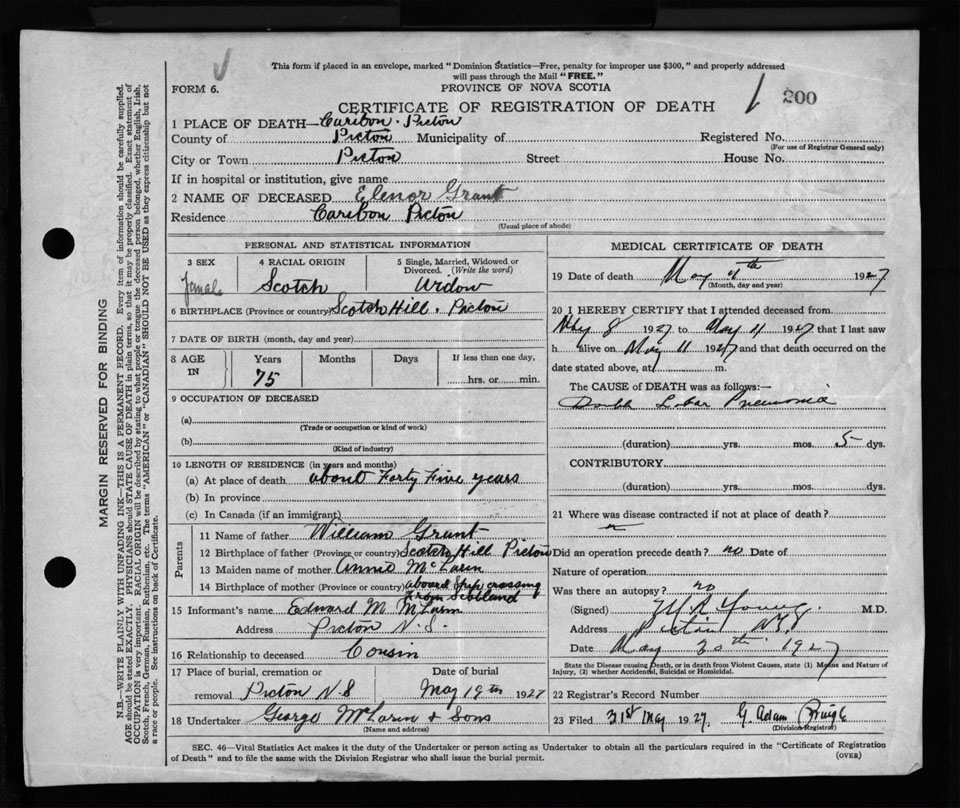 This form if placed in an envelope, marked "Dominion Statistics—Free, penalty for improper use $300," and properly addressed
will pass through the Mail "FREE."
FORM 6.
PROVINCE OF NOVA SCOTIA
CERTIFICATE OF REGISTRATION OF DEATH
200
1 PLACE OF DEATH—Caribou. Pictou
County of Pictou Municipality of Registered No.
(For use of Registrar General only)
City or Town Pictou Street House No.
If in hospital or institution, give name
2 NAME OF DECEASED Elenor Grant
Residence Caribou Pictou
(Usual place of abode)
MARGIN RESERVED FOR BINDING
N.B.—WRITE PLAINLY WITH UNFADING INK—THIS IS A PERMANENT RECORD. Every item of information should be carefully supplied.
AGE should be stated EXACTLY. PHYSICIANS should STATE CAUSE OF DEATH in plain terms, so that it may be properly classified. Exact statement of
OCCUPATION is very important. RACIAL ORIGIN will be described by stating to what people or tongue the deceased person belonged, whether English, Irish,
Scotch, French, German, Russian, Ruthenian, etc. The terms "AMERICAN" or "CANADIAN" SHOULD NOT BE USED as they express citizenship but not
a race or people. See instructions on back of Certificate.
PERSONAL AND STATISTICAL INFORMATION
3 SEX
4 RACIAL ORIGIN
5 Single, Married, Widowed or
Divorced. (Write the word)
Female Scotch Widow
6 BIRTHPLACE (Province or country) Scotch Hill. Pictou
7 DATE OF BIRTH (month, day and year)
8 AGE
IN
Years Months Days
If less than one day,
75
hrs. or min.
9 OCCUPATION OF DECEASED
(a)
(Trade or occupation or kind of work)
(b)
(Kind of industry)
10 LENGTH OF RESIDENCE (in years and months)
(a) At place of death about Forty Five years
(b) In province
(c) In Canada (if an immigrant)
Parents
11 Name of father William Grant
12 Birthplace of father (Province or country) Scotch Hill Pictou
13 Maiden name of mother Annie McLarin
14 Birthplace of mother (Province or country) aboard Ship crossing
from Scotland
15 Informant's name Edward M. McLarin
Address Pictou N.S.
16 Relationship to deceased Cousin
17 Place of burial, cremation or
removal Pictou N.S
Date of burial
May 19th 1927
18 Undertaker George McLarin & Sons
(Name and address)
MEDICAL CERTIFICATE OF DEATH
19 Date of death May 1927
(Month, day and year)
20 I HEREBY CERTIFY that I attended deceased from
May 8 1927 to May 11 1927 that I last saw
h alive on May 11 1927 and that death occurred on the
date stated above, at m.
The CAUSE of DEATH was as follows:—
Double Lobar Pneumonia
(duration) yrs. mos. 5 dys.
CONTRIBUTORY
(duration) yrs. mos. dys.
21 Where was disease contracted if not at place of death?
Did an operation precede death? no Date of
Nature of operation
Was there an autopsy? no
(Signed) Young. M.D.
Address Pictou N.S
Date May 30th 1927
State the Disease causing Death, or in death from Violent Causes, state (1) Means and Nature of
Injury, and (2) whether Accidental, Suicidal or Homicidal.
22 Registrar's Record Number
23 Filed 31st May 1927. G. Adam
(Division Registrar)
SEC. 46—Vital Statistics Act makes it the duty of the Undertaker or person acting as Undertaker to obtain all the particulars required in the "Certificate of Registration
of Death" and to file the same with the Division Registrar who shall issue the burial permit.
(OVER)